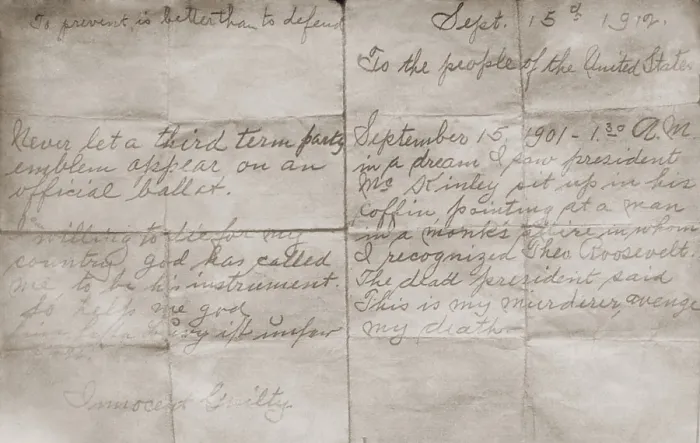 To prevent is better than to defend
Never let a third term party
emblem appear on an
official ballot.
I willing to die for my
country, god has called
me to be his instrument.
So help me god
ist unser
Innocent Guilty
Sept. 15 d 1912.
To the people of the United States
September 15 1901 - 1.30 A.M.
in a dream I saw president
Mc Kinley sit up in his
coffin, pointing at a man
in a monk's attire in whom
I recognized Theo. Roosevelt.
The dead president said
This is my murderer, avenge
my death